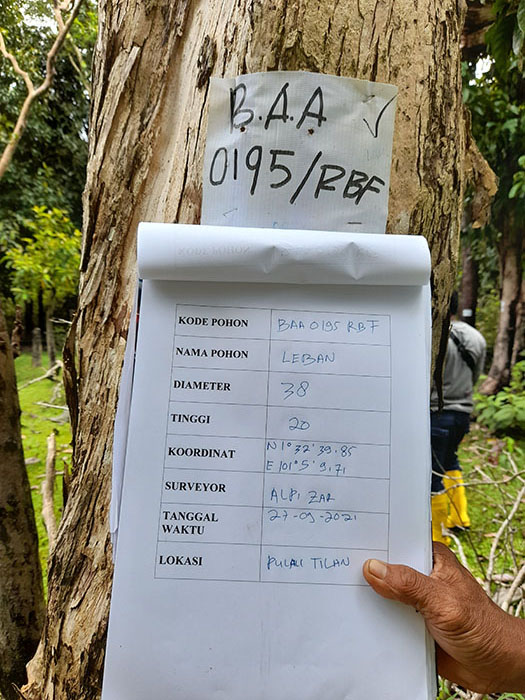 B.A.A ✓
0195/RBF
KODE POHON BAA 0195 RBF
NAMA POHON LEBAN
DIAMETER 38
TINGGI 20
KOORDINAT N 1° 32' 39.85
E 101° 5' 9.71
SURVEYOR ALPI ZAR
TANGGAL WAKTU 27-09-2021
LOKASI PULAU TILAN